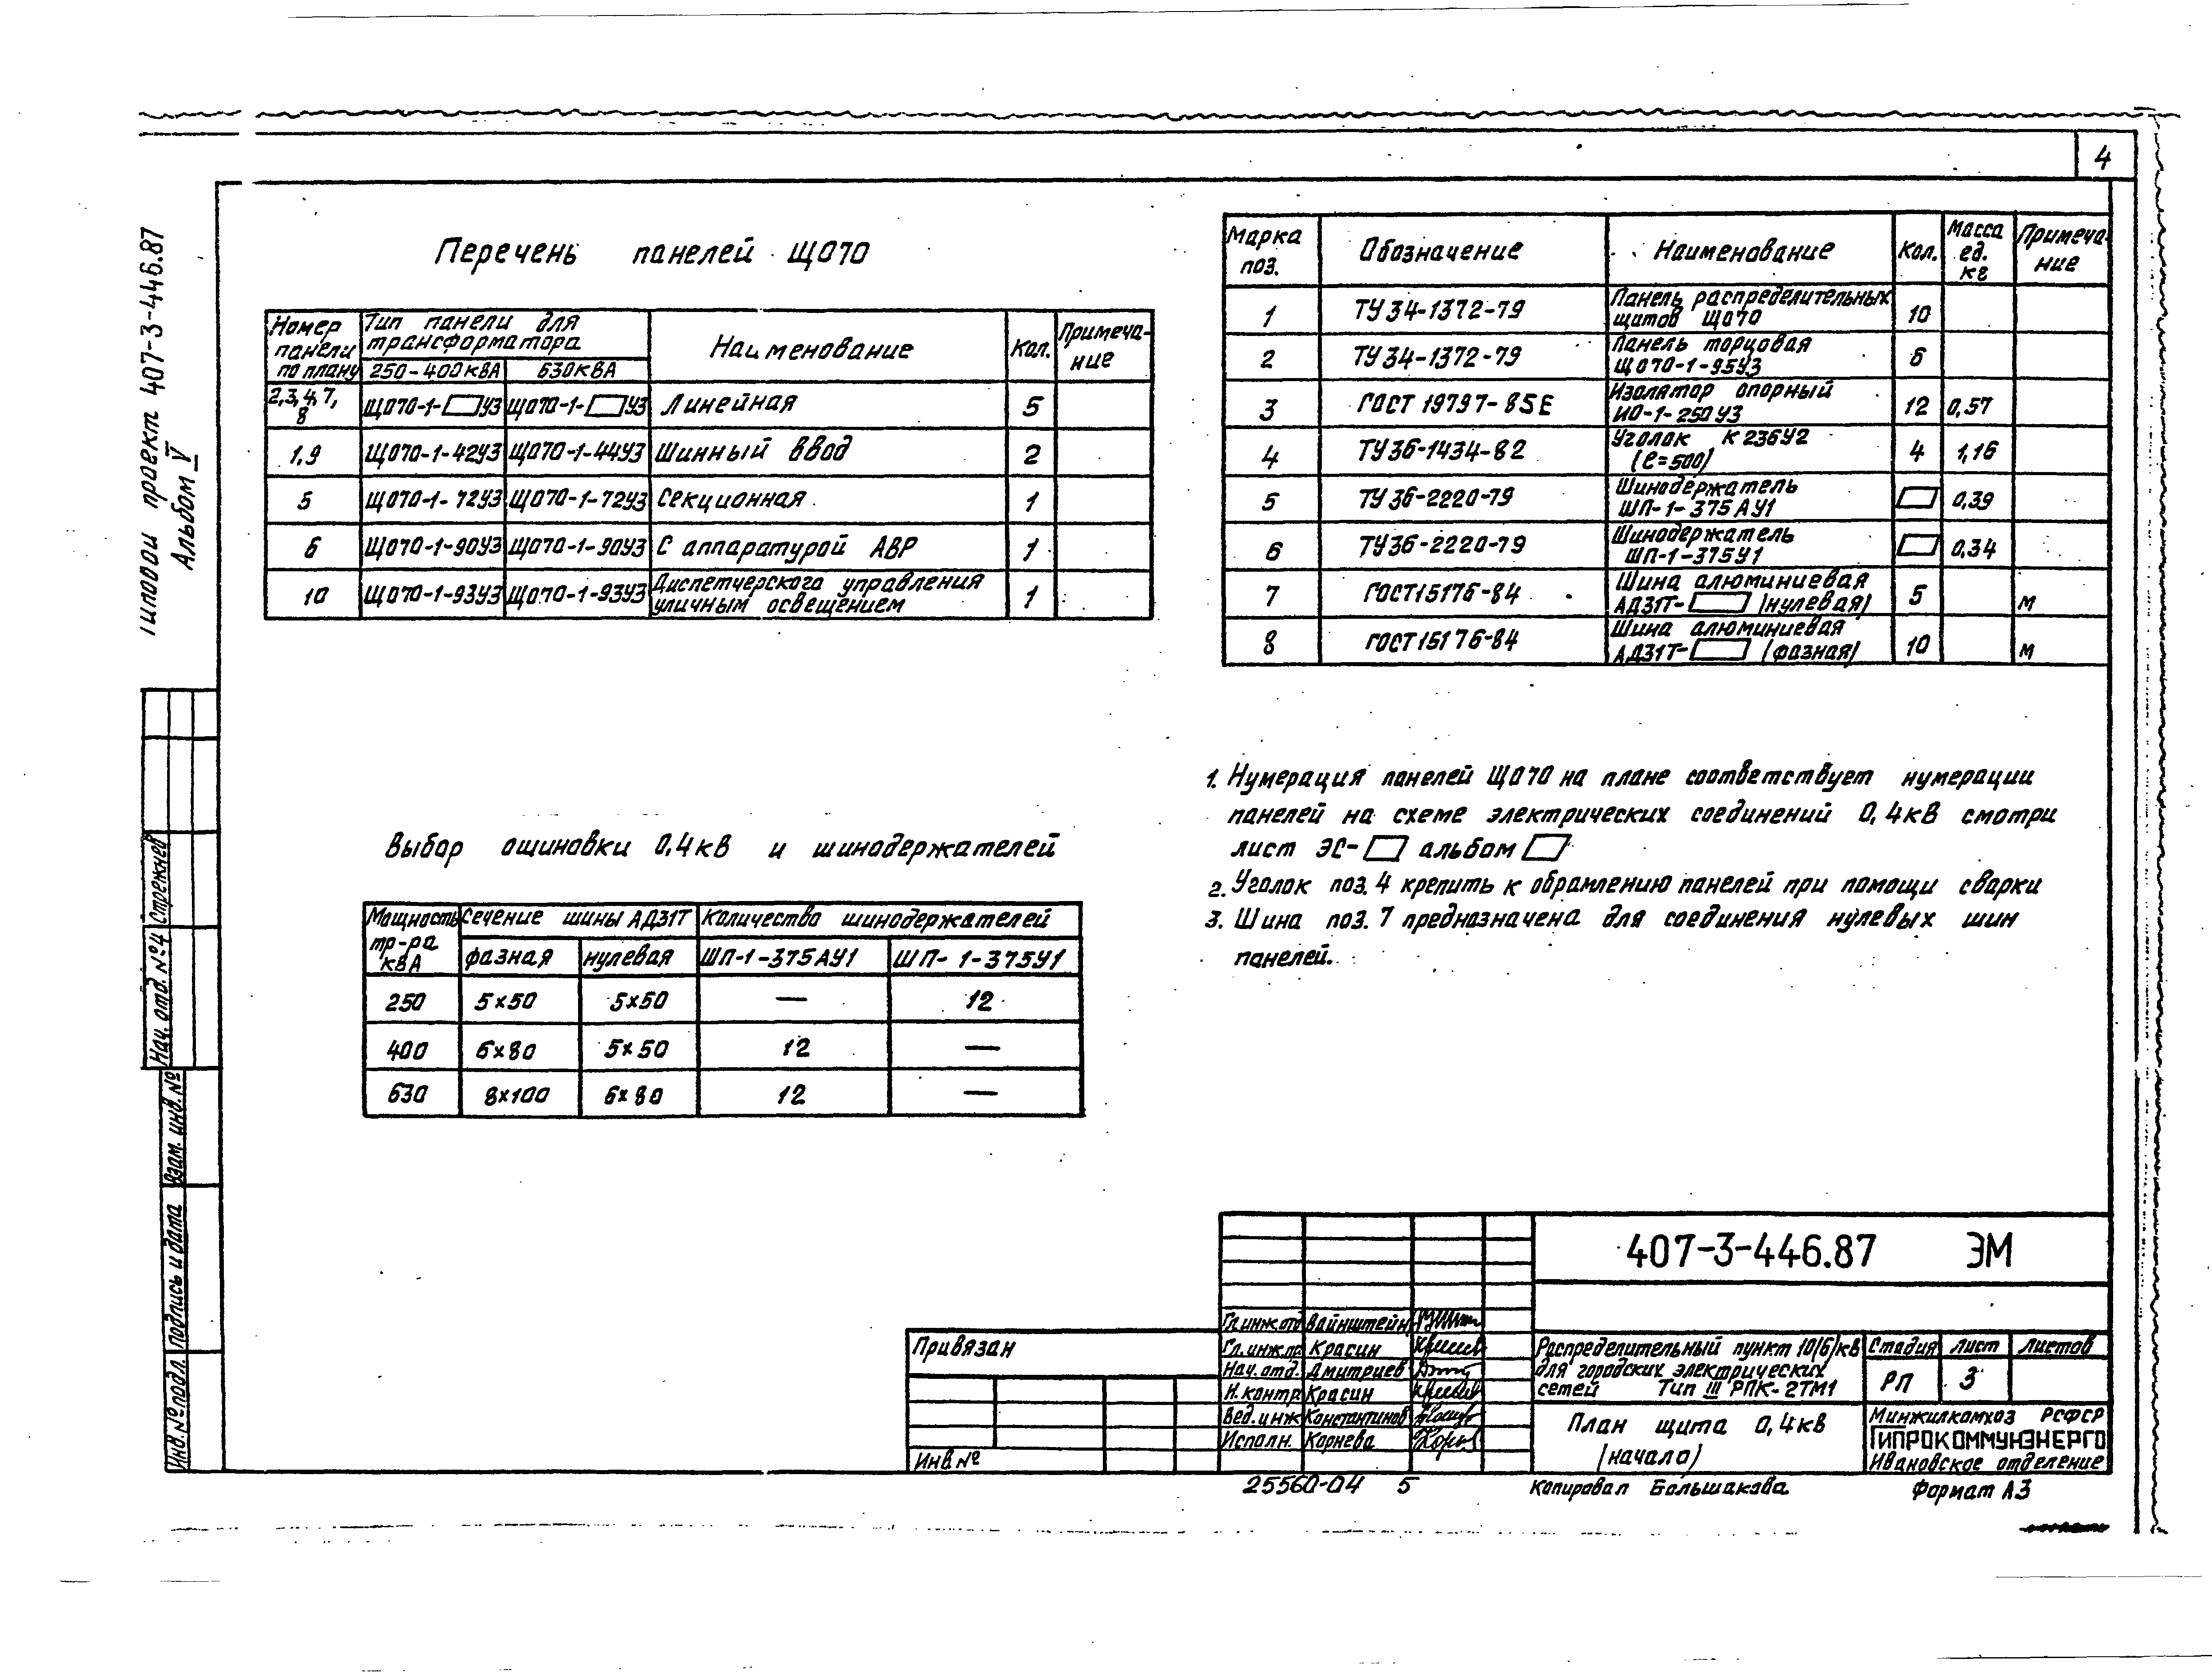 4
Типовой проект 407-3-446.87
Альбом V
Перечень панелей ЩО70
Номер панели по плану
Тип панели для трансформатора
250-400кВА
630кВА
Наименование
Кол.
Примечание
2,3,4,7,8 ЩО70-1-▭У3 ЩО70-1-▭У3 Линейная 5
1,9 ЩО70-1-42У3 ЩО70-1-44У3 Шинный ввод 2
5 ЩО70-1-72У3 ЩО70-1-72У3 Секционная 1
6 ЩО70-1-90У3 ЩО70-1-90У3 С аппаратурой АВР 1
10 ЩО70-1-93У3 ЩО70-1-93У3 Диспетчерского управления
уличным освещением 1
Марка поз.
Обозначение
Наименование
Кол.
Масса ед. кг
Примечание
1 ТУ 34-1372-79 Панель распределительных
щитов ЩО70 10
2 ТУ 34-1372-79 Панель торцовая
ЩО70-1-95У3 6
3 ГОСТ 19797-85Е Изолятор опорный
ИО-1-250У3 12 0,57
4 ТУ36-1434-82 Уголок К236У2
(ℓ=500) 4 1,16
5 ТУ 36-2220-79 Шинодержатель
ШП-1-375АУ1 ▭ 0,39
6 ТУ36-2220-79 Шинодержатель
ШП-1-375У1 ▭ 0,34
7 ГОСТ15176-84 Шина алюминиевая
АД31Т-▭ (нулевая) 5 м
8 ГОСТ15176-84 Шина алюминиевая
АД31Т-▭ (фазная) 10 м
Выбор ошиновки 0,4кв и шинодержателей
Мощность тр-ра кВА
Сечение шины АД31Т
Количество шинодержателей
фазная нулевая ШП-1-375АУ1 ШП-1-375У1
250 5×50 5×50 — 12
400 6×80 5×50 12 —
630 8×100 6×80 12 —
1. Нумерация панелей ЩО70 на плане соответствует нумерации
панелей на схеме электрических соединений 0,4кв смотри
лист ЭС-▭ альбом ▭
2. Уголок поз. 4 крепить к обрамлению панелей при помощи сварки
3. Шина поз. 7 предназначена для соединения нулевых шин
панелей.
Нач. отд. №4 Стрежнев
Взам. инв. №
Подпись и дата
Инв. № подл.
Привязан
Инв №
Гл.инж.отд Вайнштейн
Гл.инж.пр. Красин
Нач. отд. Дмитриев
Н.контр. Красин
Вед.инж Константинов
Исполн. Корнева
407-3-446.87 ЭМ
Распределительный пункт 10(6)кв
для городских электрических
сетей Тип III РПК-2ТМ1
Стадия Лист Листов
РП 3
План щита 0,4кв
(начало)
Минжилкомхоз РСФСР
ГИПРОКОММУНЭНЕРГО
Ивановское отделение
25560-04 5
Копировал Большакова
Формат А3